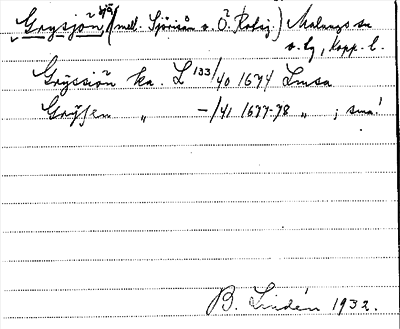 Grysjön, (mell. Sjöviån o. Ö. ) Malungs sn
o. tg, Kopp. l.
Gryssiön ka. L 133/40 1674 Lmsa
Grÿsen " -/41 1677-78 " ; små!
B. Lindén 1932.